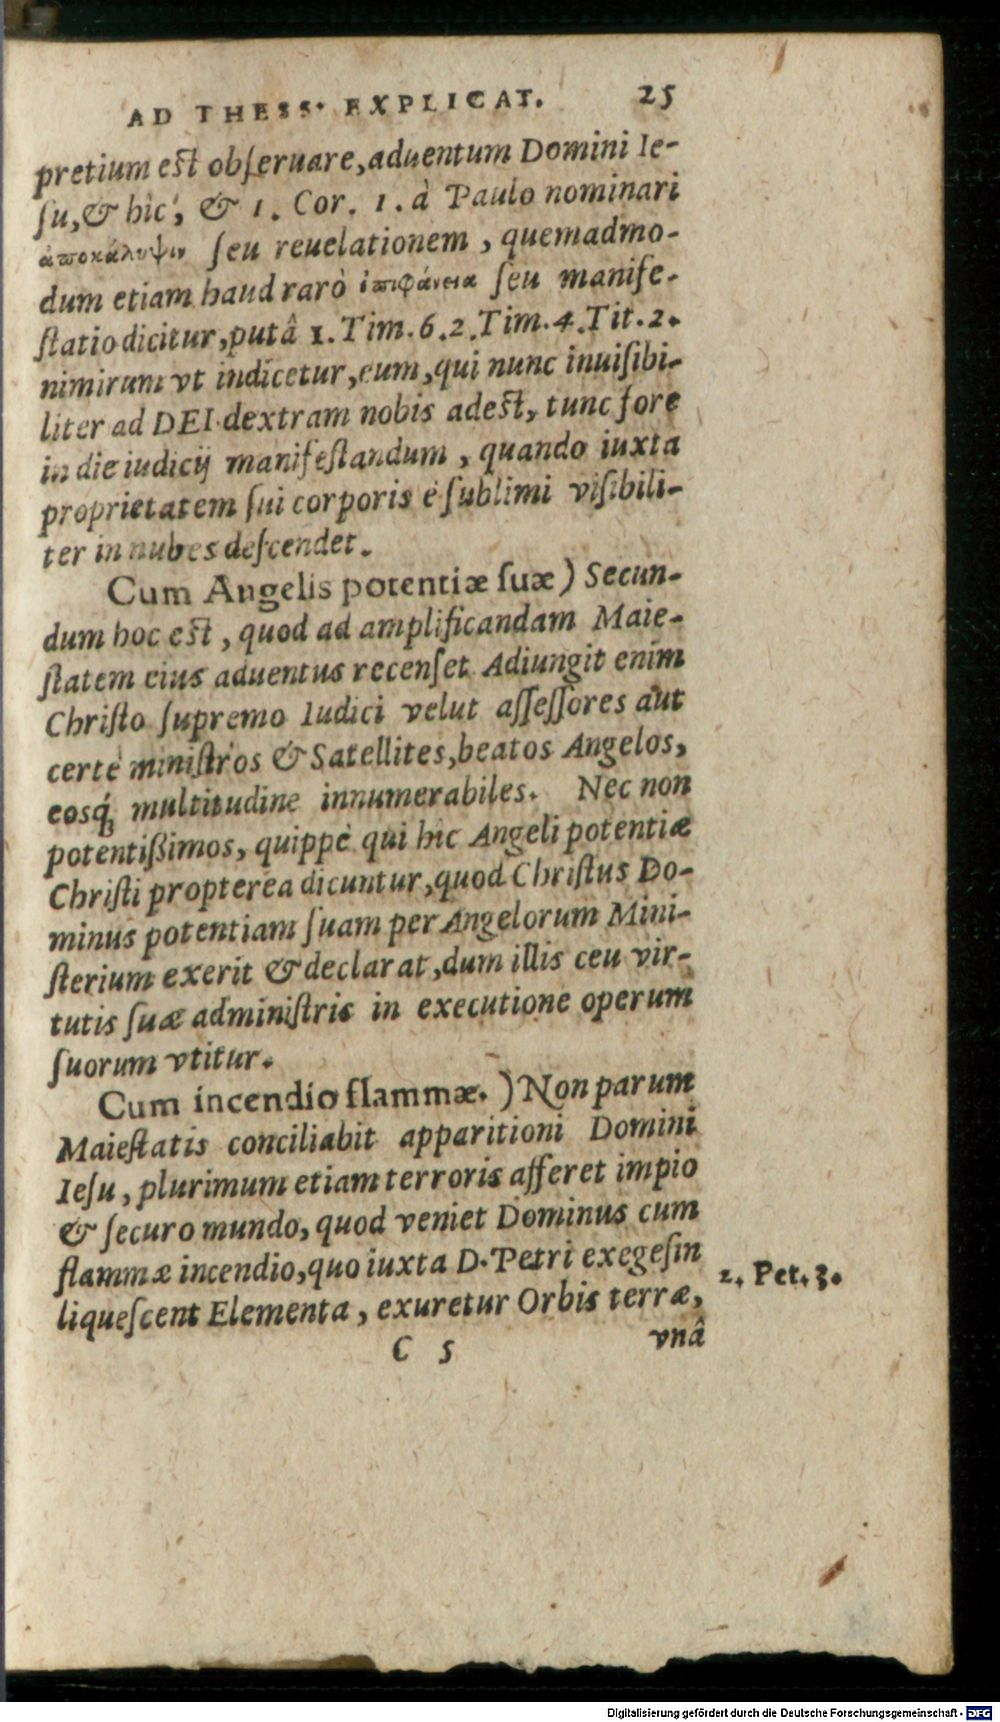 AD THESS. EXPLICAT. 25
pretium est obſeruare, aduentum Domini Ie-
ſu, & hìc, & 1. Cor. 1. à Paulo nominari
ἀποκάλυψιν ſeu reuelationem, quemadmo-
dum etiam haud rarò ἐπιφάνεια ſeu manife-
ſtatio dicitur, putâ 1. Tim. 6. 2. Tim. 4. Tit. 2.
nimirum vt indicetur, eum, qui nunc inuiſibi-
liter ad DEI dextram nobis adest, tunc fore
in die iudicij manifeſtandum, quando iuxta
proprietatem ſui corporis è ſublimi viſibili-
ter in nubes deſcendet.
Cum Angelis potentiæ ſuæ) Secun-
dum hoc est, quod ad amplificandam Maie-
ſtatem eius aduentus recenſet. Adiungit enim
Chriſto ſupremo Iudici velut aſſeſſores aut
certè miniſtros & Satellites, beatos Angelos,
eosq́; multitudine innumerabiles. Nec non
potentißimos, quippè qui hìc Angeli potentiæ
Chriſti propterea dicuntur, quod Chriſtus Do-
minus potentiam ſuam per Angelorum Mini-
ſterium exerit & declarat, dum illis ceu vir-
tutis ſuæ adminiſtris in executione operum
ſuorum vtitur.
Cum incendio flammæ.) Non parum
Maieſtatis conciliabit apparitioni Domini
Ieſu, plurimum etiam terroris afferet impio
& ſecuro mundo, quod veniet Dominus cum
flammæ incendio, quo iuxta D. Petri exegeſin
liqueſcent Elementa, exuretur Orbis terræ,
2. Pet. 3.
C 5 vnâ
Digitalisierung gefördert durch die Deutsche Forschungsgemeinschaft - DFG